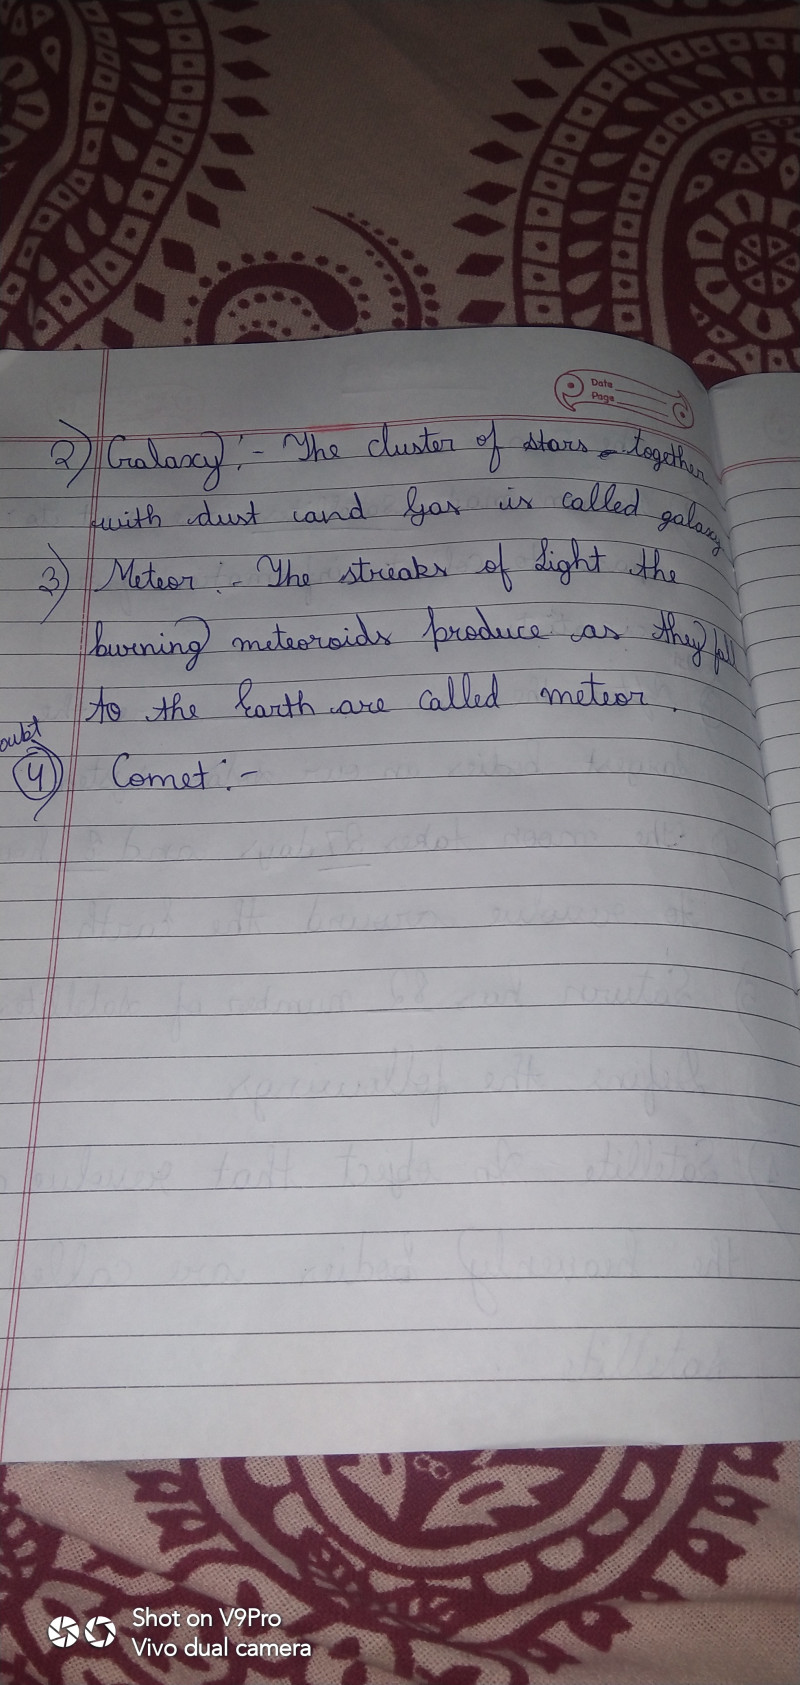 Date
Page
2) Galaxy :- The cluster of stars together
with dust and gas is called galaxy
3) Meteor :- The streaks of light the
burning meteoroids produce as they fall
to the Earth are called meteor.
4) Comet :-
Shot on V9Pro
Vivo dual camera